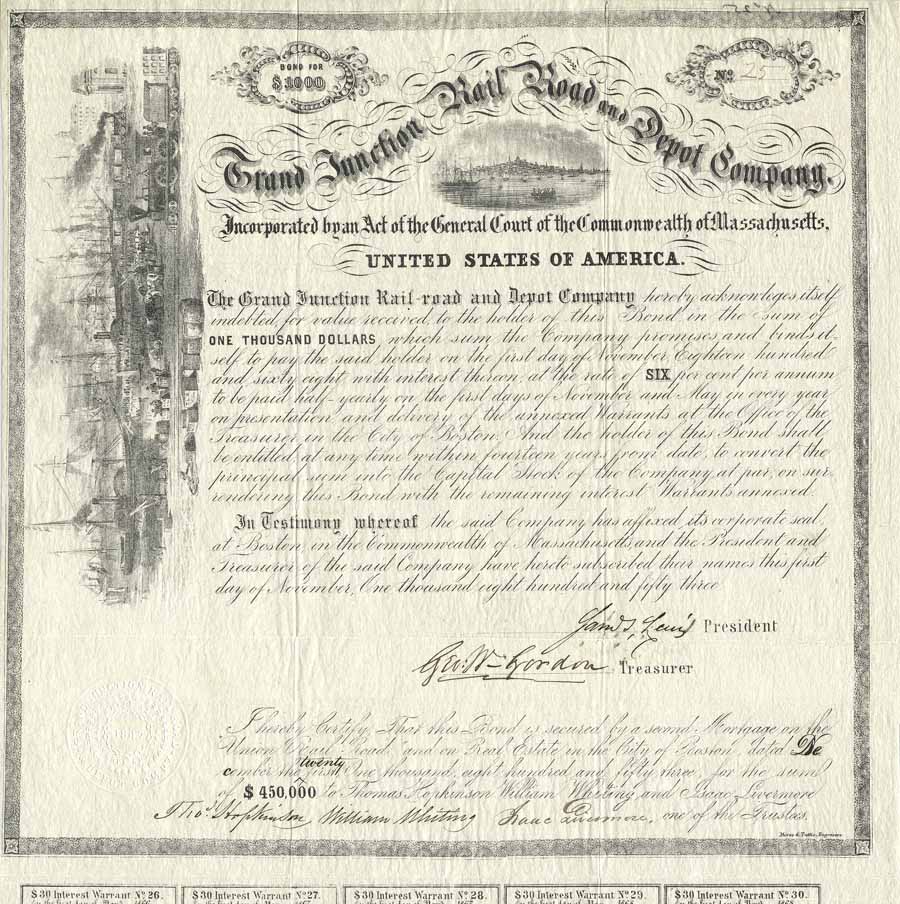 BOND FOR
$1000
No. 25
Grand Junction Rail Road and Depot Company.
Incorporated by an Act of the General Court of the Commonwealth of Massachusetts,
UNITED STATES OF AMERICA.
The Grand Junction Rail-road and Depot Company hereby acknowleges itself
indebted, for value received, to the holder of this Bond in the sum of
ONE THOUSAND DOLLARS which sum the Company promises and binds it-
self to pay the said holder on the first day of November, Eighteen hundred
and sixty eight with interest thereon, at the rate of SIX per cent per annum
to be paid half-yearly on the first days of November and May in every year
on presentation and delivery of the annexed Warrants at the Office of the
Treasurer in the City of Boston. And the holder of this Bond shall
be entitled, at any time within fourteen years from date, to convert the
principal sum into the Capital Stock of the Company at par, on sur-
rendering this Bond with the remaining interest Warrants annexed.
In Testimony whereof the said Company has affixed its corporate seal,
at Boston, in the Commonwealth of Massachusetts, and the President and
Treasurer of the said Company have hereto subscribed their names this first
day of November, One thousand eight hundred and fifty three
Saml. S. Lewis President
Geo: Wm Gordon Treasurer
I hereby Certify, That this Bond is secured by a second Mortgage on the
"Union Rail Road," and on Real Estate in the City of Boston, dated De
cember the twenty first, One thousand, eight hundred and fifty three, for the sum
of $450,000 to Thomas Hopkinson William Whiting and Isaac Livermore
Thos. Hopkinson, William Whiting Isaac Livermore, one of the Trustees.
$30 Interest Warrant No. 26.
$30 Interest Warrant No. 27.
$30 Interest Warrant No. 28.
$30 Interest Warrant No. 29
$30 Interest Warrant No. 30.